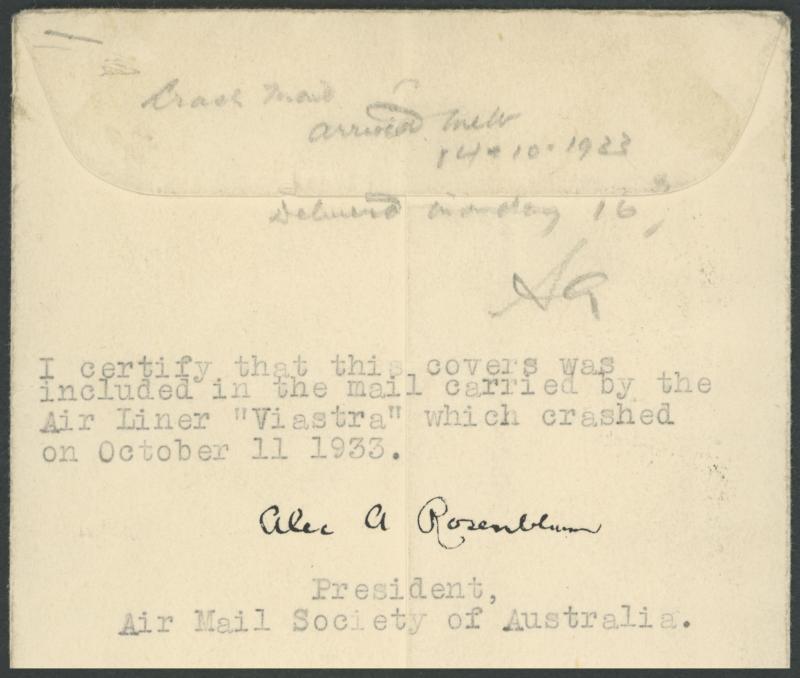 Crash Mail
arrived Melb
14-10-1933
Delivered Monday 16
I certify that this covers was
included in the mail carried by the
Air Liner "Viastra" which crashed
on October 11 1933.
Alec A Rosenblum
President,
Air Mail Society of Australia.